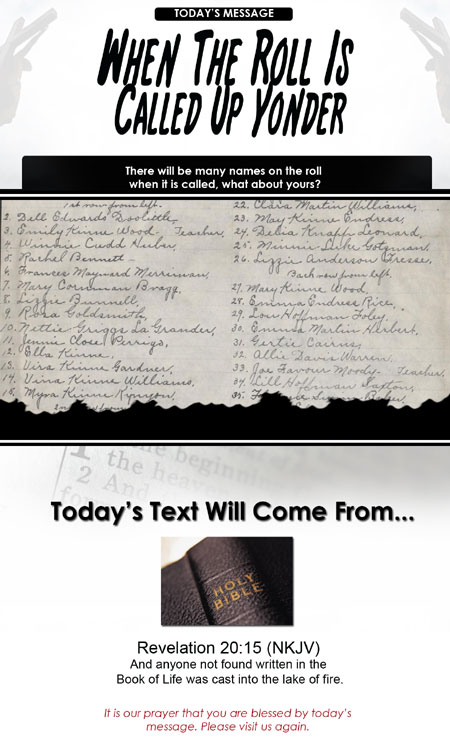 TODAY'S MESSAGE
WHEN THE ROLL IS
CALLED UP YONDER
There will be many names on the roll
when it is called, what about yours?
1st row from left.
2. Dell Edwards Doolittle
3. Emily Kinne Wood - Teacher,
4. Winnie Cudd
5. Rachel Bennett
6. Frances Maynard Merriman,
7. Mary Bragg,
8. Lizzie Bunnell,
9. Rosa Goldsmith,
10. Nettie Griggs La Grander,
11. Jennie Close Perrigo,
2. Ella Kinne,
13. Vira Kinne Gardner,
14. Vina Kinne Williams,
15. Myra Kinne Kynyon,
22. Clara Martin Williams,
23. May Kinne Endress,
24. Delia Knapp Leonard,
25. Minnie Luke
26. Lizzie Anderson
Back row from left.
27. Mary Kinne Wood
28. Emma Endress Rice,
29. Lou Hoffman Foley
30. Emma Martin Herbert,
31. Gertie Cairns,
32. Allie Davis Warren,
33. Joe Favour Moody - Teacher,
34. Lill Hoffman Saxton,
35.
1
the beginning
the heavens
2 And
Today's Text Will Come From...
HOLY
BIBLE
Revelation 20:15 (NKJV)
And anyone not found written in the
Book of Life was cast into the lake of fire.
It is our prayer that you are blessed by today's
message. Please visit us again.